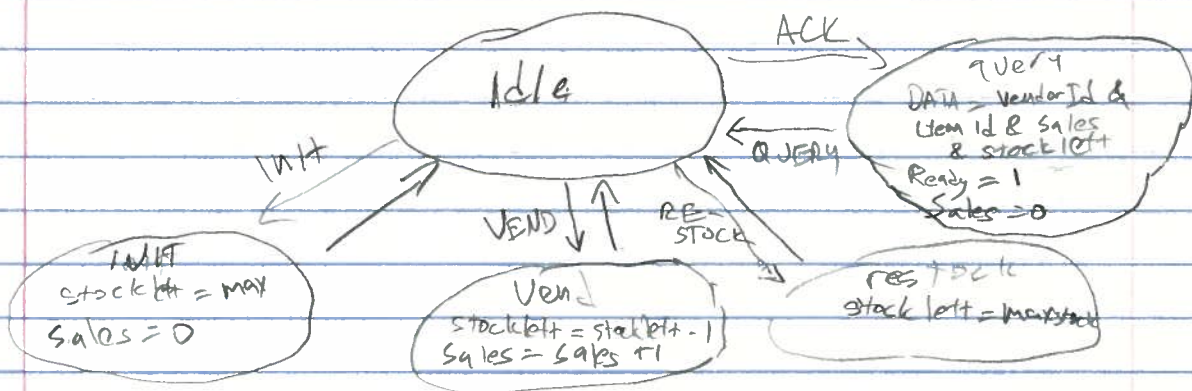 Idle
ACK
query
DATA = vendorId &
item id & sales
& stockleft
Ready = 1
Sales = 0
QUERY
Init
VEND
RE-
STOCK
INIT
stockleft = max
sales = 0
Vend
stockleft = stockleft - 1
Sales = Sales + 1
restock
stockleft = maxstock